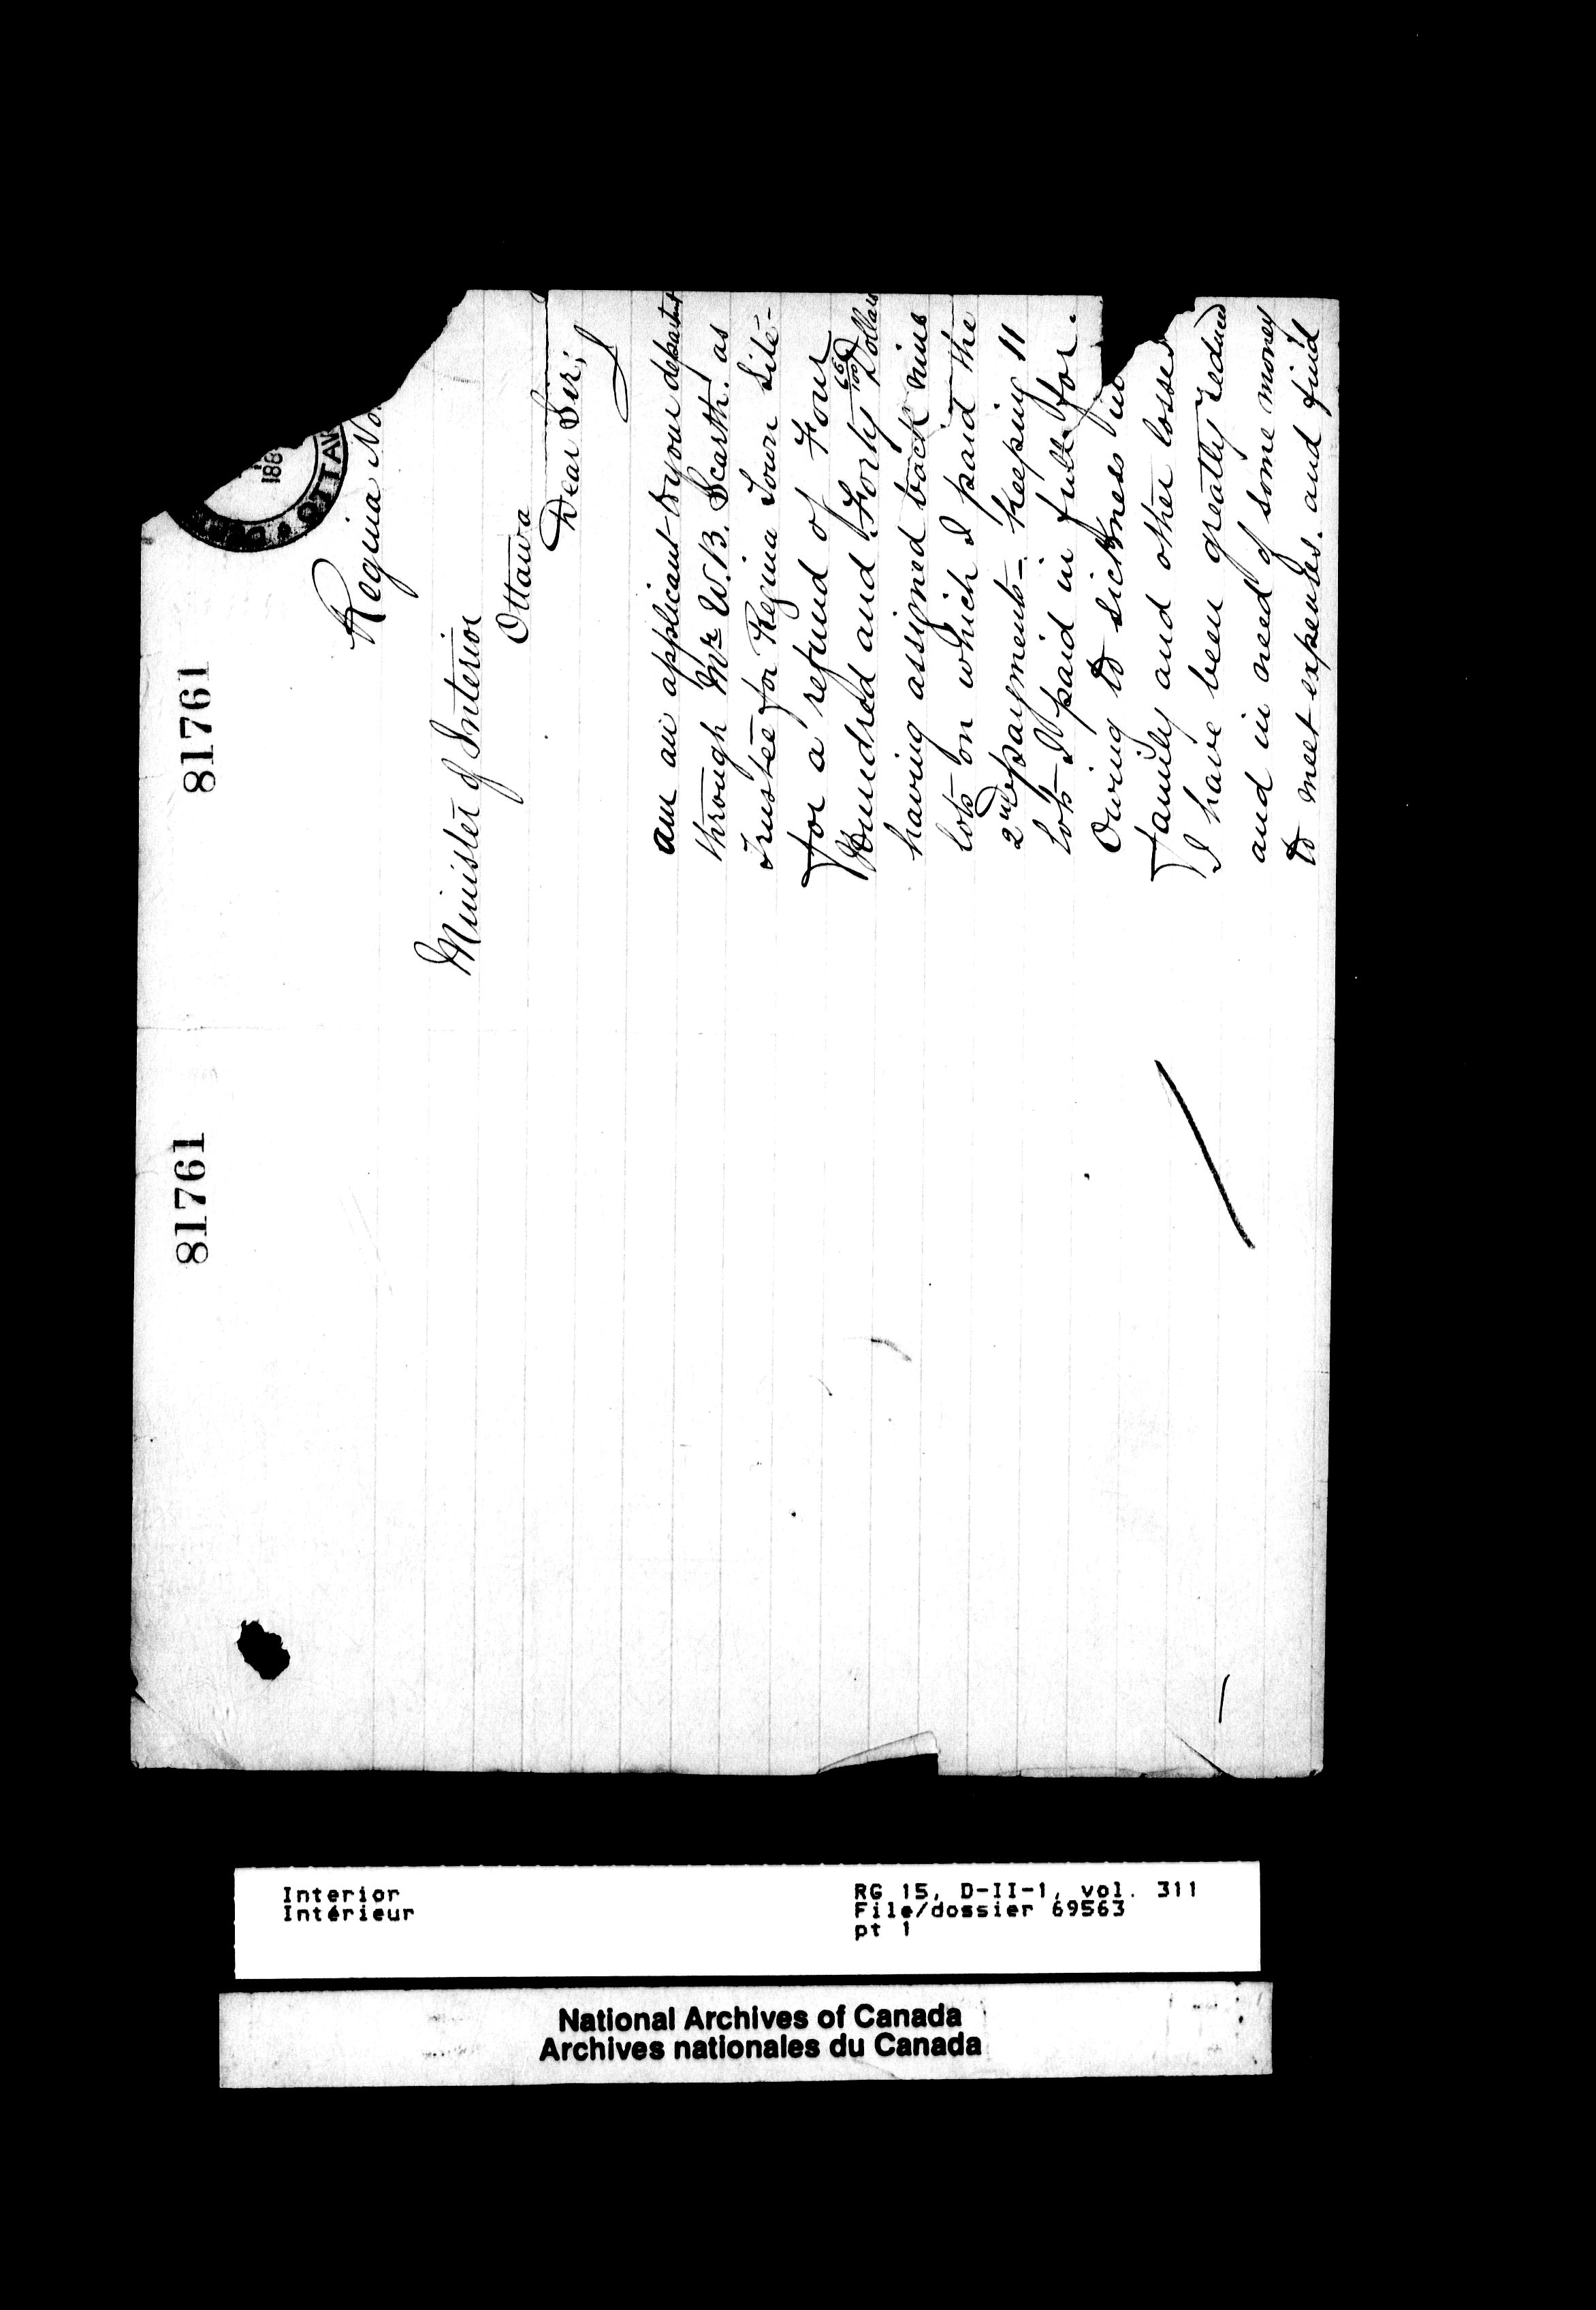 81761
81761
188
OTTAW
Regina No
Minister of Interior
Ottawa
Dear Sir;
I
am an applicant to your department
through Mr W. B. Scarth. as
Trustee for Regina Town Site-
for a refund of Four
Hundred and Forty Dollars
having assigned back nine
lots on which I paid the
2nd payments- Keeping 11
lots I paid in full for.
Owing to sickness in
family and other losses
I have been greatly reduced
and in need of some money
to meet expenses. and find
Interior
Intérieur
RG 15, D-II-1, vol. 311
File/dossier 69563
pt 1
National Archives of Canada
Archives nationales du Canada